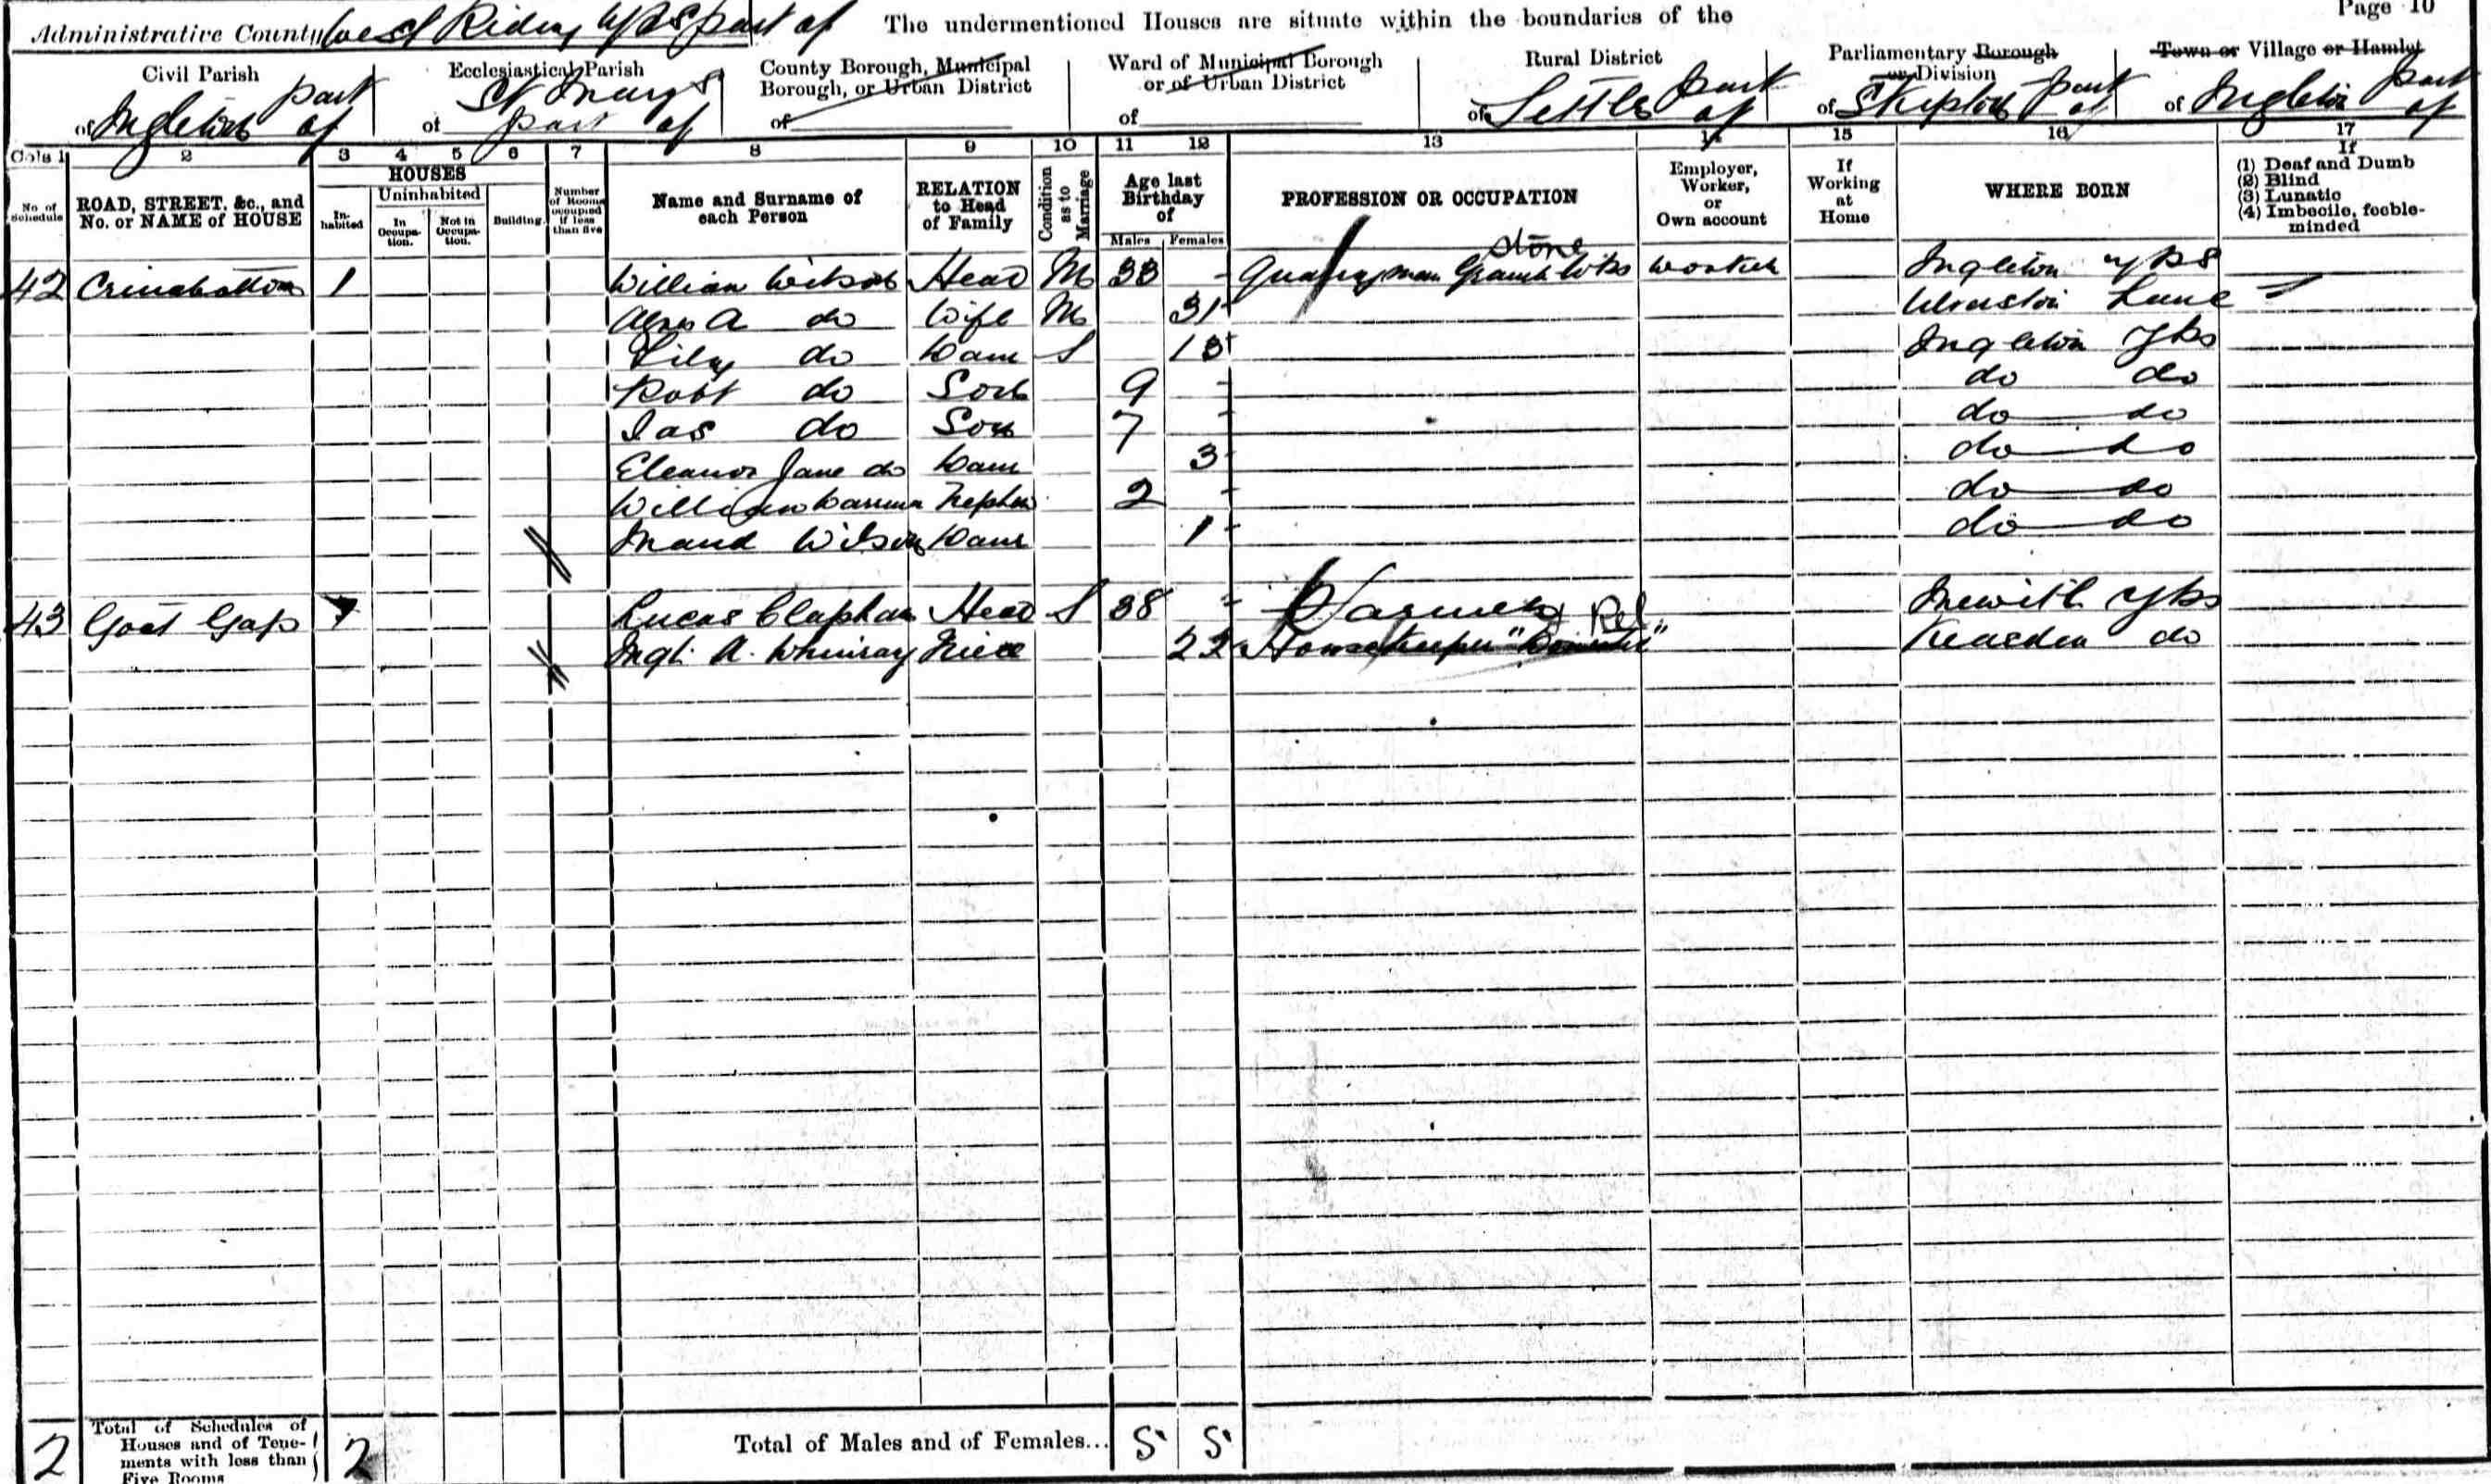 Page 10
Administrative County West Riding Yks part of The undermentioned Houses are situate within the boundaries of the
Civil Parish Ecclesiastical Parish County Borough, Municipal Borough, or Urban District Ward of Municipal Borough or of Urban District Rural District Parliamentary Borough or Division Town or Village or Hamlet
of Ingleton part of of St Mary's part of of of of Settle part of of Skipton part of of Ingleton part of
Cols 1 2 3 4 5 6 7 8 9 10 11 12 13 14 15 16 17
No. of Schedule
ROAD, STREET, &c., and No. or NAME of HOUSE
HOUSES
In-habited
Uninhabited
In Occupa-tion.
Not in Occupa-tion.
Building.
Number of Rooms occupied if less than five
Name and Surname of each Person
RELATION to Head of Family
Condition as to Marriage
Age last Birthday of
Males Females
PROFESSION OR OCCUPATION
Employer, Worker, or Own account
If Working at Home
WHERE BORN
If
(1) Deaf and Dumb
(2) Blind
(3) Lunatic
(4) Imbecile, feeble-minded
stone
42 1 William Wilson Head M 33 - Quarryman Granite Wks Worker Ingleton Yks
Agnes A do Wife M 31 Ulverston Lanc
Lily do Daur S 13 Ingleton Yks
Robt do Son 9 - do do
Jas do Son 7 - do do
Eleanor Jane do Daur 3 do do
William Nephew 2 - do do
Maud Wilson Daur 1 do do
43 Goat Gap 1 Lucas Clapham Head S 38 - Farmer Mewith Yks
Rel
Mgt. A. Whinray Niece 22 Housekeeper "Domestic" Keasden do
2 Total of Schedules of Houses and of Tene-ments with less than Five Rooms 2 Total of Males and of Females... 5 5